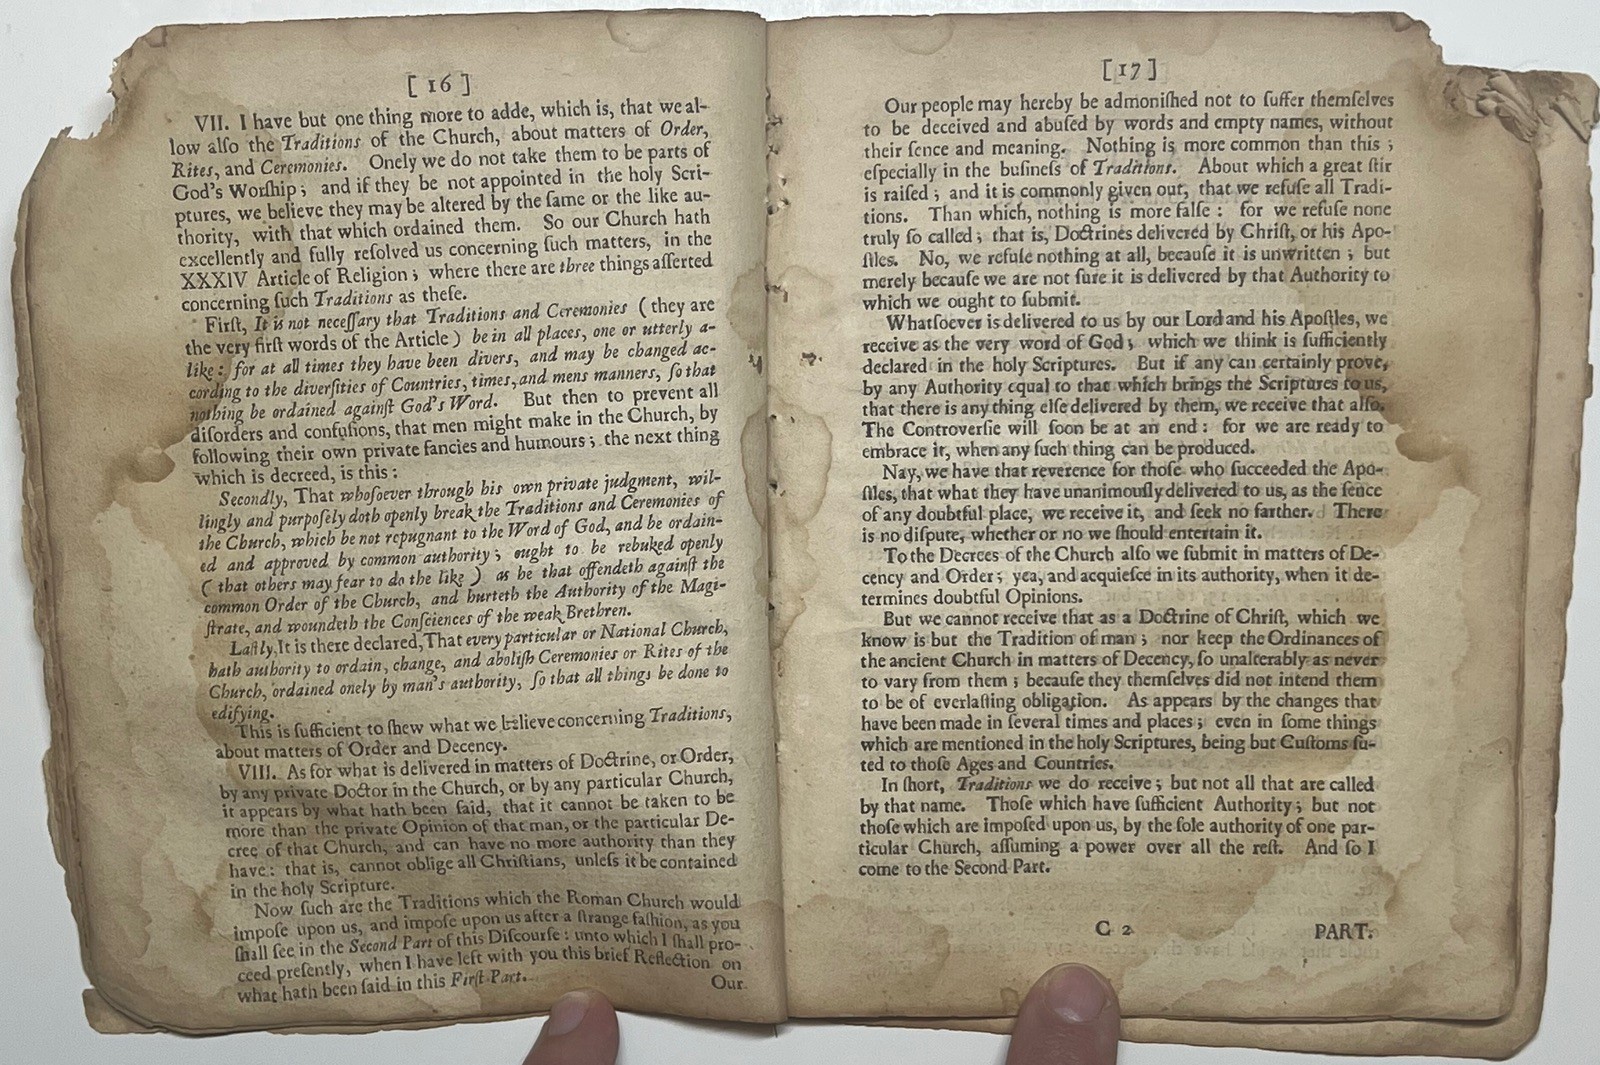 [ 16 ]
VII. I have but one thing more to adde, which is, that we al-
low alſo the Traditions of the Church, about matters of Order,
Rites, and Ceremonies. Onely we do not take them to be parts of
God's Worſhip; and if they be not appointed in the holy Scri-
ptures, we believe they may be altered by the ſame or the like au-
thority, with that which ordained them. So our Church hath
excellently and fully reſolved us concerning ſuch matters, in the
XXXIV Article of Religion; where there are three things aſſerted
concerning ſuch Traditions as theſe.
Firſt, It is not neceſſary that Traditions and Ceremonies (they are
the very firſt words of the Article) be in all places, one or utterly a-
like: for at all times they have been divers, and may be changed ac-
cording to the diverſities of Countries, times, and mens manners, ſo that
nothing be ordained againſt God's Word. But then to prevent all
diſorders and confuſions, that men might make in the Church, by
following their own private fancies and humours; the next thing
which is decreed, is this:
Secondly, That whoſoever through his own private judgment, wil-
lingly and purpoſely doth openly break the Traditions and Ceremonies of
the Church, which be not repugnant to the Word of God, and be ordain-
ed and approved by common authority; ought to be rebuked openly
(that others may fear to do the like) as he that offendeth againſt the
common Order of the Church, and hurteth the Authority of the Magi-
ſtrate, and woundeth the Conſciences of the weak Brethren.
Laſtly, It is there declared, That every particular or National Church,
hath authority to ordain, change, and aboliſh Ceremonies or Rites of the
Church, ordained onely by man's authority, ſo that all things be done to
edifying.
This is ſufficient to ſhew what we believe concerning Traditions,
about matters of Order and Decency.
VIII. As for what is delivered in matters of Doctrine, or Order,
by any private Doctor in the Church, or by any particular Church,
it appears by what hath been ſaid, that it cannot be taken to be
more than the private Opinion of that man, or the particular De-
cree of that Church, and can have no more authority than they
have: that is, cannot oblige all Chriſtians, unleſs it be contained
in the holy Scripture.
Now ſuch are the Traditions which the Roman Church would
impoſe upon us, and impoſe upon us after a ſtrange faſhion, as you
ſhall ſee in the Second Part of this Diſcourſe: unto which I ſhall pro-
ceed preſently, when I have left with you this brief Reflection on
what hath been ſaid in this Firſt Part.
Our
[ 17 ]
Our people may hereby be admoniſhed not to ſuffer themſelves
to be deceived and abuſed by words and empty names, without
their ſence and meaning. Nothing is more common than this;
eſpecially in the buſineſs of Traditions. About which a great ſtir
is raiſed; and it is commonly given out, that we refuſe all Tradi-
tions. Than which, nothing is more falſe: for we refuſe none
truly ſo called; that is, Doctrines delivered by Chriſt, or his Apo-
ſtles. No, we refuſe nothing at all, becauſe it is unwritten; but
merely becauſe we are not ſure it is delivered by that Authority to
which we ought to ſubmit.
Whatſoever is delivered to us by our Lord and his Apoſtles, we
receive as the very word of God; which we think is ſufficiently
declared in the holy Scriptures. But if any can certainly prove,
by any Authority equal to that which brings the Scriptures to us,
that there is any thing elſe delivered by them, we receive that alſo.
The Controverſie will ſoon be at an end: for we are ready to
embrace it, when any ſuch thing can be produced.
Nay, we have that reverence for thoſe who ſucceeded the Apo-
ſtles, that what they have unanimouſly delivered to us, as the ſence
of any doubtful place, we receive it, and ſeek no farther. There
is no diſpute, whether or no we ſhould entertain it.
To the Decrees of the Church alſo we ſubmit in matters of De-
cency and Order; yea, and acquieſce in its authority, when it de-
termines doubtful Opinions.
But we cannot receive that as a Doctrine of Chriſt, which we
know is but the Tradition of man; nor keep the Ordinances of
the ancient Church in matters of Decency, ſo unalterably as never
to vary from them; becauſe they themſelves did not intend them
to be of everlaſting obligation. As appears by the changes that
have been made in ſeveral times and places; even in ſome things
which are mentioned in the holy Scriptures, being but Cuſtoms ſu-
ted to thoſe Ages and Countries.
In ſhort, Traditions we do receive; but not all that are called
by that name. Thoſe which have ſufficient Authority; but not
thoſe which are impoſed upon us, by the ſole authority of one par-
ticular Church, aſſuming a power over all the reſt. And ſo I
come to the Second Part.
C 2
PART.